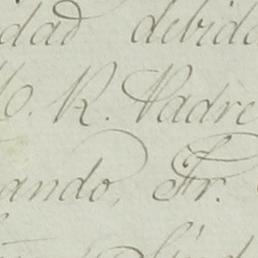 dad debida
M. R. Padre
ando, Fr.